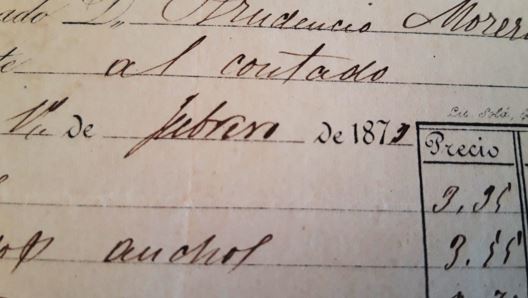 ado D. Prudencio Morer
te al contado
1º de febrero de 187
Lit. Solá,
Precio
3.35
anchos 3.55